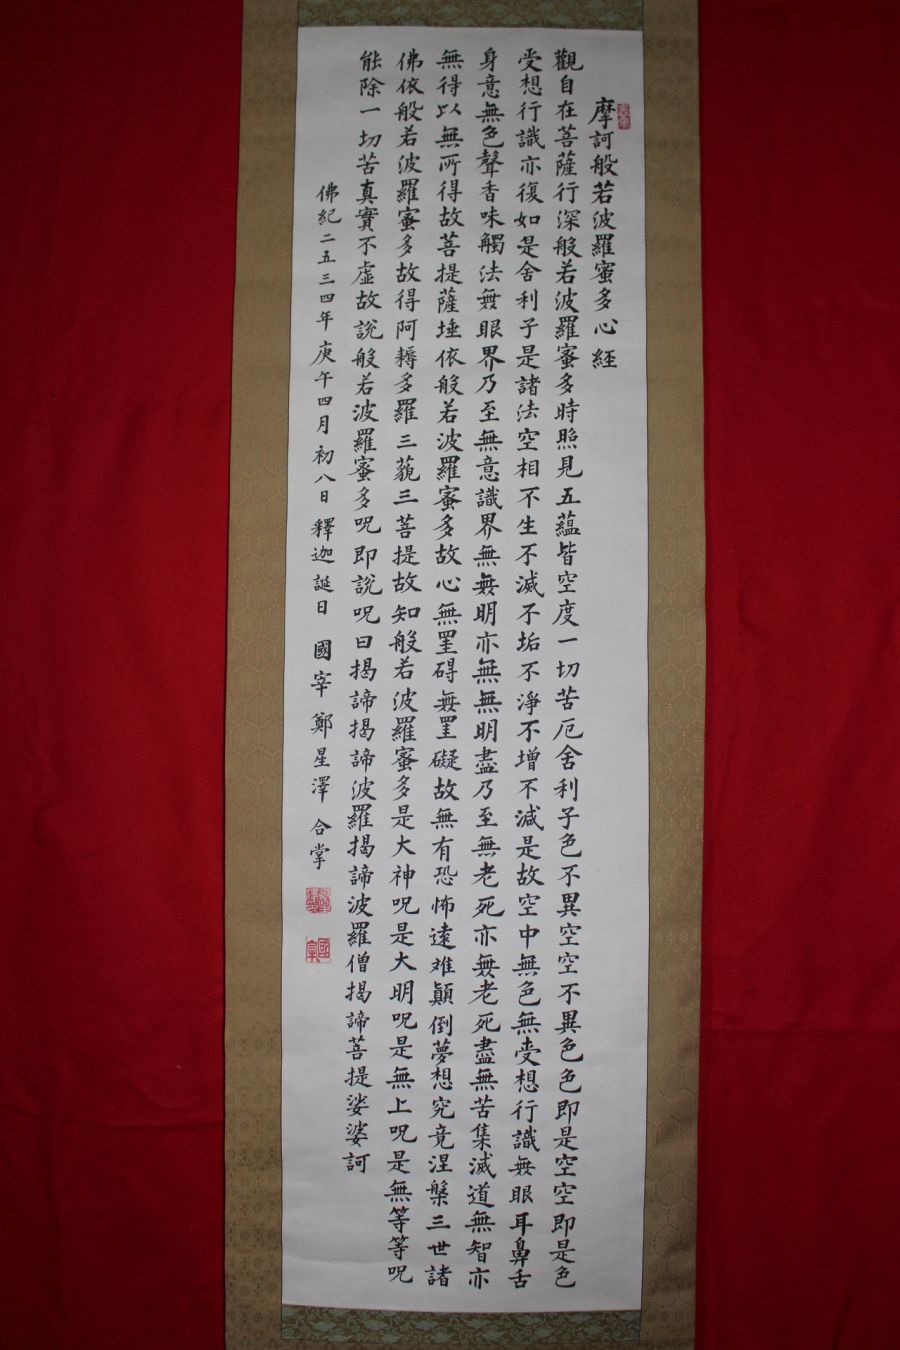 摩訶般若波羅蜜多心経
觀自在菩薩行深般若波羅蜜多時照見五蘊皆空度一切苦厄舍利子色不異空空不異色色即是空空即是色
受想行識亦復如是舍利子是諸法空相不生不滅不垢不淨不增不減是故空中無色無受想行識無眼耳鼻舌
身意無色聲香味觸法無眼界乃至無意識界無無明亦無無明盡乃至無老死亦無老死盡無苦集滅道無智亦
無得以無所得故菩提薩埵依般若波羅蜜多故心無罣碍無罣礙故無有恐怖遠难顛倒夢想究竟涅槃三世諸
佛依般若波羅蜜多故得阿耨多羅三藐三菩提故知般若波羅蜜多是大神呪是大明呪是無上呪是無等等呪
能除一切苦真實不虛故說般若波羅蜜多呪即說呪曰揭諦揭諦波羅揭諦波羅僧揭諦菩提娑婆訶
佛紀二五三四年庚午四月初八日釋迦誕日 國宰 鄭星澤 合掌